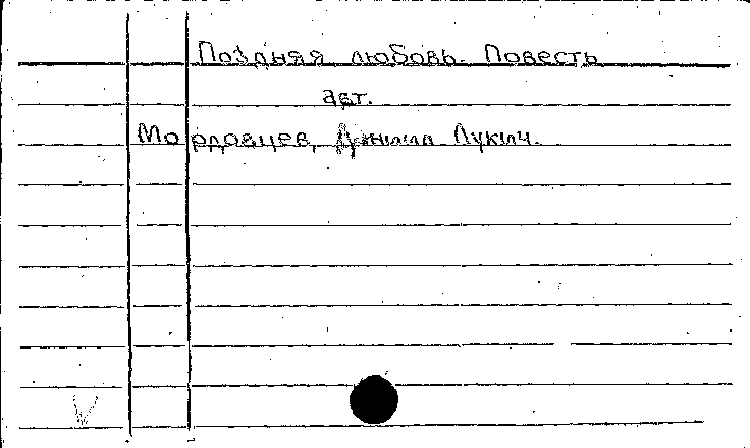 Поздняя любовь. Повесть
авт.
Мордовцев, Даниил Лукич.